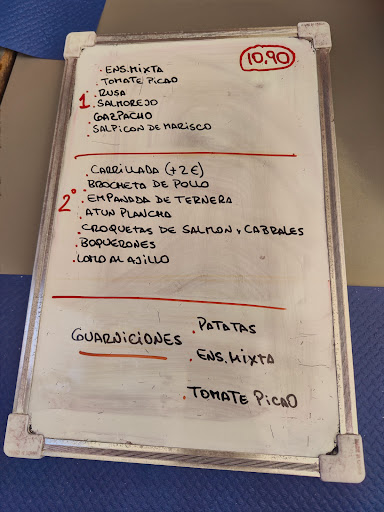 10.90
. ENS. MIXTA
. TOMATE PICAO
. RUSA
1. SALMOREJO
. GAZPACHO
. SALPICON DE MARISCO
. CARRILLADA (+2€)
. BROCHETA DE POLLO
2º . EMPANADA DE TERNERA
. ATUN PLANCHA
. CROQUETAS DE SALMON Y CABRALES
. BOQUERONES
. LOMO AL AJILLO
GUARNICIONES
. PATATAS
. ENS. MIXTA
. TOMATE PICAO